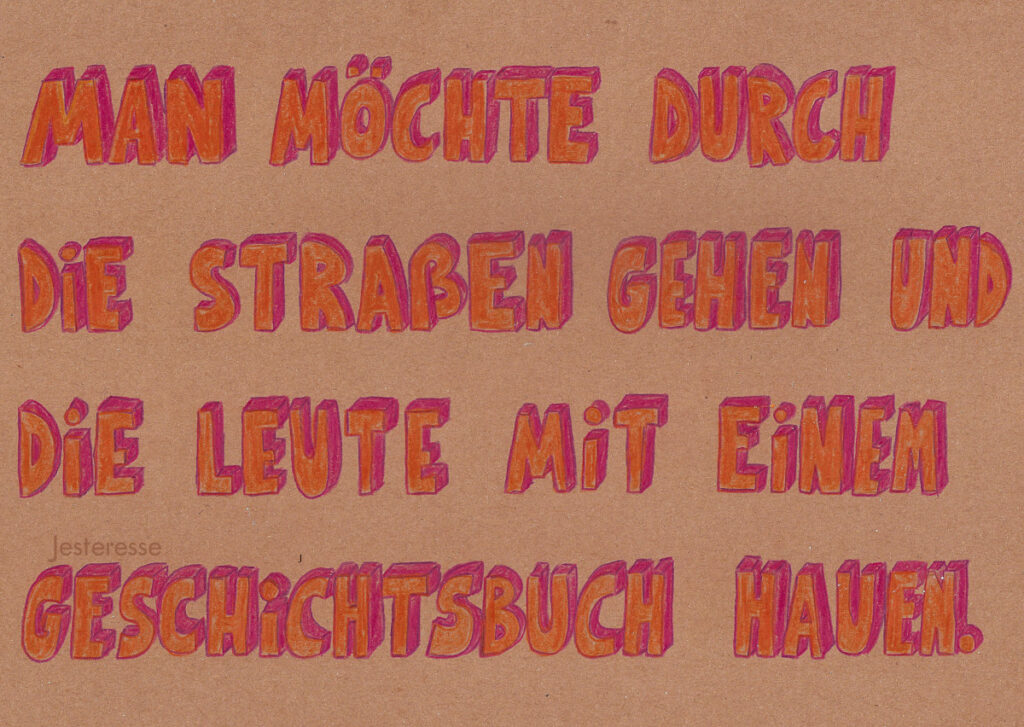 MAN MÖCHTE DURCH
DiE STRAßEN GEHEN UND
DiE LEUTE MiT EiNEM
Jesteresse
GESCHiCHTSBUCH HAUEN.